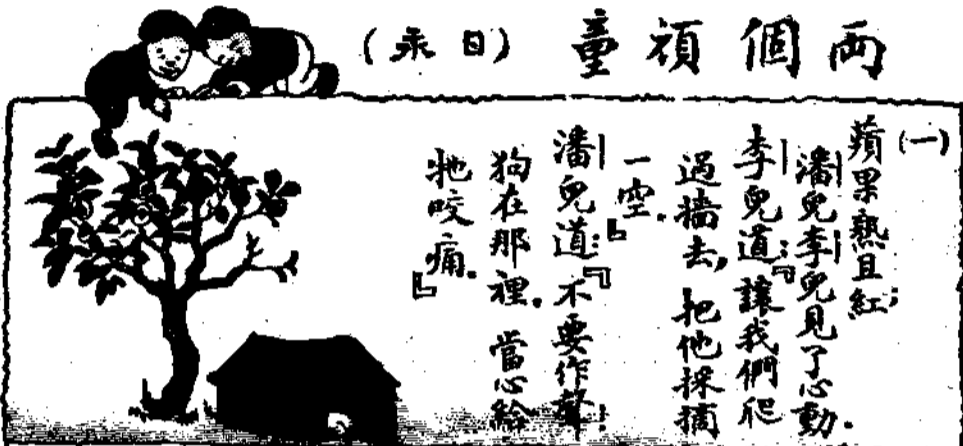 兩個頑童 (日永)
(一)
蘋果熟且紅;
潘兒李兒見了心動.
李兒道:『讓我們爬
過墻去,把他採摘
一空.』
潘兒道:『不要作聲:
狗在那裡.當心給
牠咬痛.』